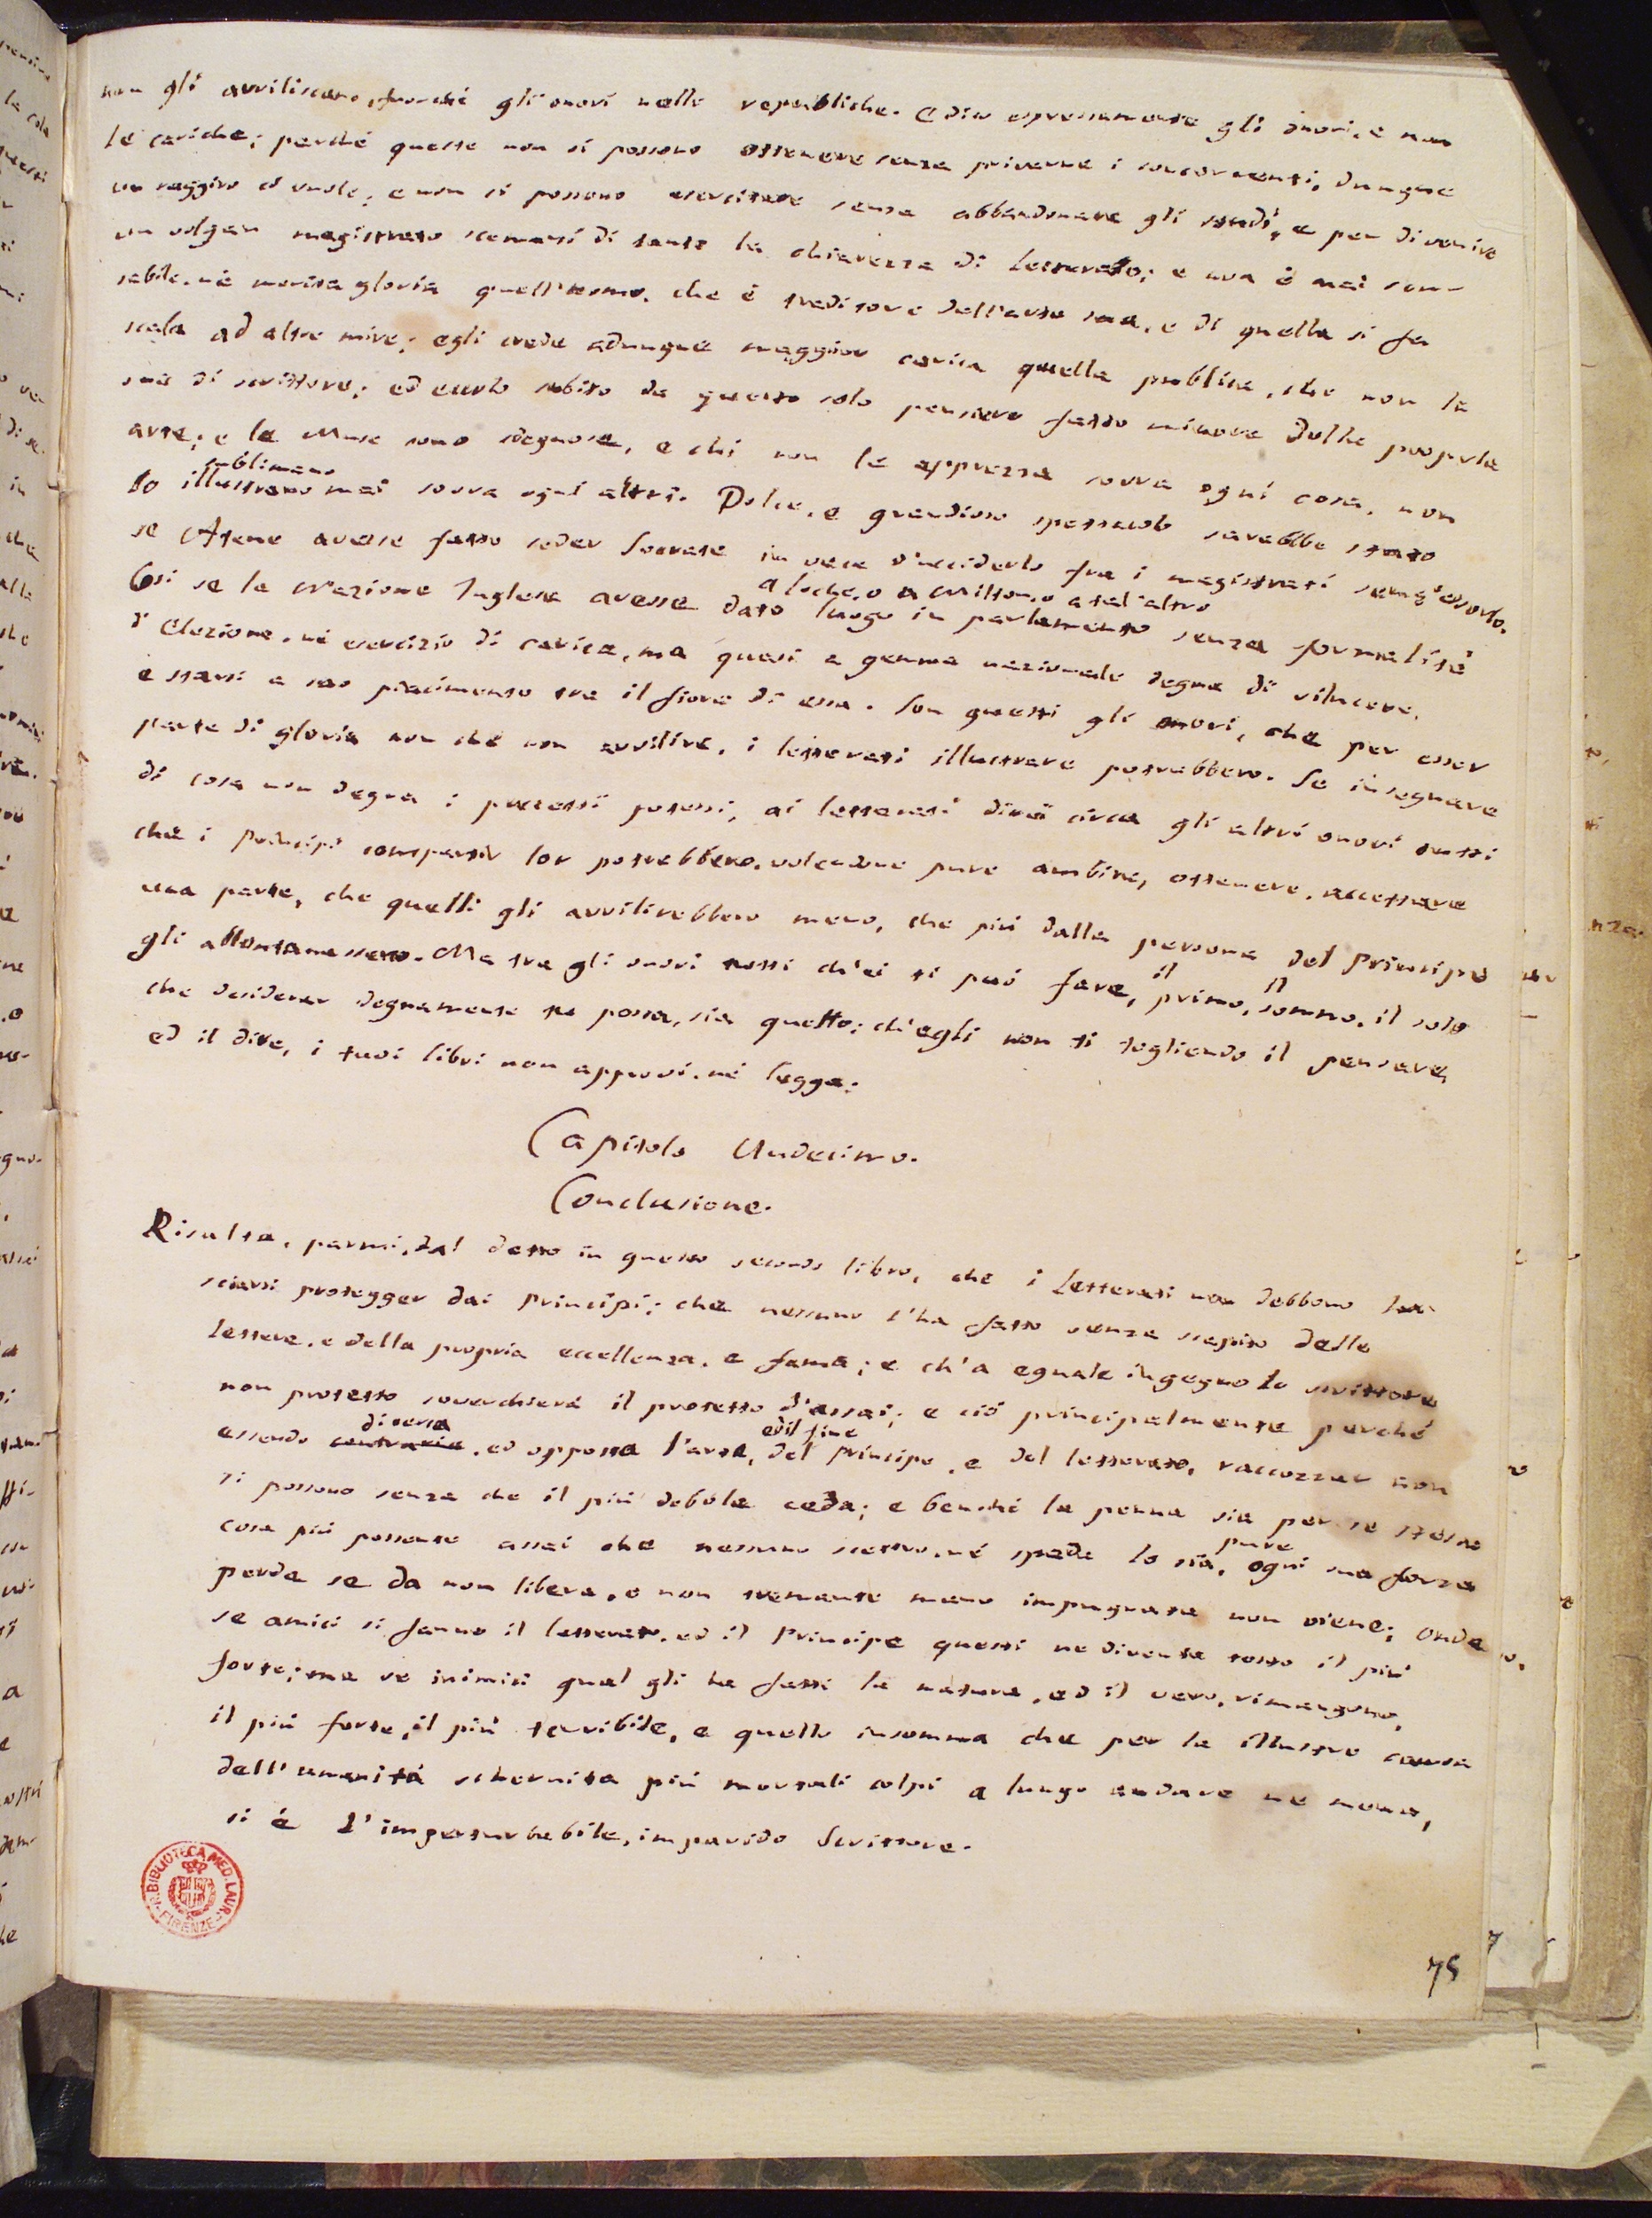 non gli avviliscano, fuorché gli onori nelle republiche. E dico espressamente gli onori, e non
le cariche; perché queste non si possono ottenere senza privarne i concorrenti, dunque
un raggiro ci vuole; e non si possono esercitare senza abbandonare gli studi; e per divenire
un volgar magistrato scemarsi di tanto la chiarezza di letterato; e non è mai scu-
sabile, né merita gloria quell'uomo, che è traditore dell'arte sua, e di quella si fa
scala ad altre mire; egli crede adunque maggior carica quella publica, che non la
sua di scrittore; ed eccolo subito da questo solo pensiero fatto minore della propria
arte; e le Muse sono sdegnose, e chi non le apprezza sovra ogni cosa, non
sublimano
lo illustrano mai sovra ogni altri. Dolce, e grandioso spettacolo sarebbe stato
se Atene avesse fatto seder Socrate in vece d'ucciderlo fra i magistrati senz'esserlo.
a Loche, o a Milton, o a tal'altro
Così se la Nazione Inglese avesse dato luogo in parlamento senza formalità
d'Elezione, né esercizio di carica, ma quasi a gemma nazionale degna di rilucere,
e starsi a suo piacimento tra il fiore di essa. Son questi gli onori, che per esser
parte di gloria non che non avvilire, i letterati illustrare potrebbero. Se insegnare
di cosa non degna i precetti potessi, ai letterati direi circa gli altri onori tutti
che i Principi compartir lor potrebbero, volendone pure ambire, ottenere, accettare
una parte, che quelli gli avvilirebbero meno, che più dalla persona del Principe
gli allontanassero. Ma tra gli onori tutti ch'ei ti può fare, il primo, il sommo, il solo
che desiderar degnamente tu possa, sia questo; ch'egli non ti togliendo il pensare,
ed il dire, i tuoi libri non approvi, né legga;
Capitolo Undecimo.
Conclusione.
Risulta, parmi, dal detto in questo secondo libro, che i Letterati non debbono la-
sciarsi protegger dai Principi; che nessuno l'ha fatto senza scapito delle
lettere, e della propria eccellenza, e fama; e ch'a eguale ingegno lo scrittore
non protetto soverchierà il protetto d'assai; e ciò principalmente perché
diversa ed il fine
essendo contraria, ed opposta l'arte, del Principe, e del letterato, raccozzar non
si possono senza che il più debole ceda; e benché la penna sia per se stessa
pure
cosa più possente assai che nessuno scettro, né spada lo sia, ogni sua forza
perde se da non libera, e non tremante mano impugnata non viene; onde
se amici si fanno il letterato, ed il Principe questi ne diventa tosto il più
forte; ma se inimici qual gli ha fatti la natura, ed il vero, rimangono,
il più forte, il più terribile, e quello insomma che per la illustre causa
dell'umanità schernita più mortali colpi a lungo andare ne mena,
si è l'imperturbabile, impavido Scrittore.
R. BIBLIOTECA MED. LAUR. FIRENZE
75